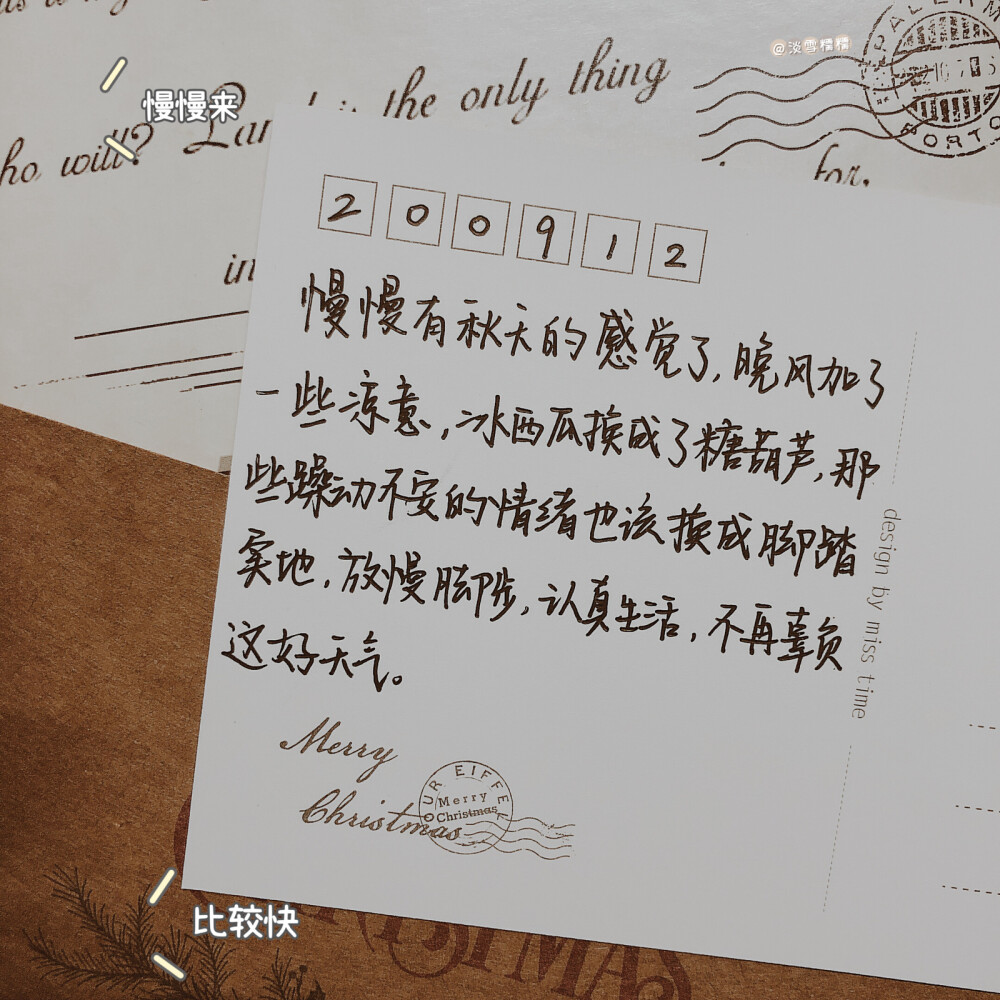 @淡雪精精
慢慢来
the only thing
ho will?
for,
in
PALERM
PORTO
200912
慢慢有秋天的感觉了,晚风加了
一些凉意,冰西瓜换成了糖葫芦,那
些躁动不安的情绪也该换成脚踏
实地,放慢脚步,认真生活,不再辜负
这好天气。
design by miss time
Merry
Christmas
OUR EIFFEL
Merry
Christmas
比较快